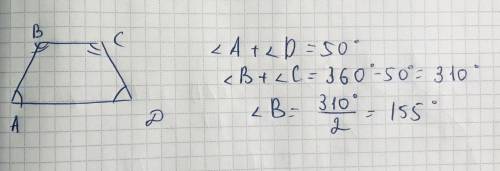 B C
A D
∠A + ∠D = 50°
∠B + ∠C = 360° - 50° = 310°
∠B = 310°/2 = 155°